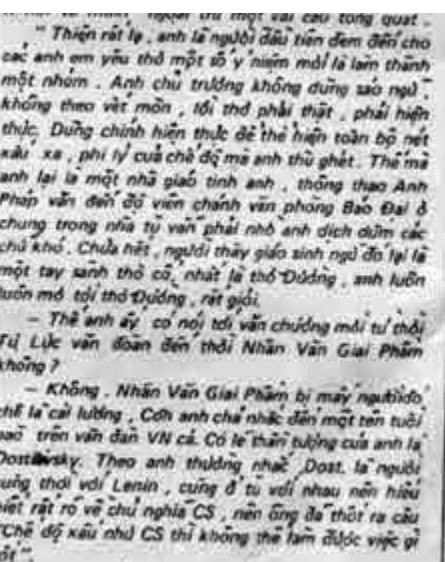 ngoài trừ một vài câu tổng quát .
" Thiện rất lạ , anh là người đầu tiên đem đến cho
các anh em yêu thơ một số ý niệm mới lạ làm thành
một nhóm . Anh chủ trương không dùng sáo ngữ
không theo vết mòn , lối thơ phải thật , phải hiện
thực. Dùng chính hiện thực để thể hiện toàn bộ nét
xấu xa , phi lý của chế độ mà anh thù ghét. Thế mà
anh lại là một nhà giáo tinh anh , thông thạo Anh
Pháp văn đến độ viên chánh văn phòng Bảo Đại ở
chung trong nhà tù vẫn phải nhờ anh dịch dùm các
chữ khó. Chưa hết , người thầy giáo sinh ngữ đó lại là
một tay sành thơ cổ, nhất là thơ Đường , anh luôn
luôn mớ tới thơ Đường , rất giỏi.
— Thế anh ấy có nói tới văn chương mới từ thời
Tự Lực văn đoàn đến thời Nhân Văn Giai Phẩm
không ?
— Không . Nhân Văn Giai Phẩm bị mấy người đó
chê là cải lương . Còn anh chả nhắc đến một tên tuổi
nào trên văn đàn VN cả. Có lẽ thần tượng của anh là
Dostoievsky. Theo anh thường nhắc , Dost. là người
cùng thời với Lenin , cùng ở tù với nhau nên hiểu
biết rất rõ về chủ nghĩa CS , nên ông đã thốt ra câu
"Chế độ xấu như CS thì không thể làm được việc gì
tốt ".